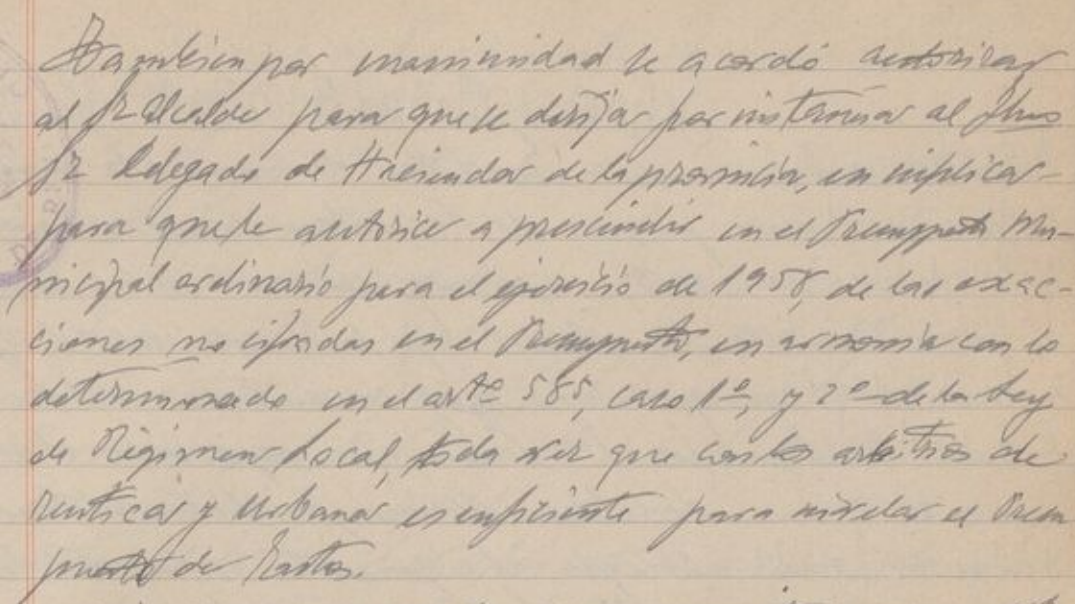 También por unanimidad se acordó autorizar
al Sr Alcalde para que se dirija por instancia al Ilmo
Sr Delegado de Hacienda de la provincia, en súplica
para que le autorice a prescindir en el Presupuesto Mu-
nicipal ordinario para el ejercicio de 1958, de las exac-
ciones no cifradas en el Presupuesto, en armonía con lo
determinado en el artº 585, caso 1º, y 2º de la Ley
de Régimen Local, toda vez que con los arbitrios de
rústica y Urbana es suficiente para nivelar el Presu
puesto de Gastos.